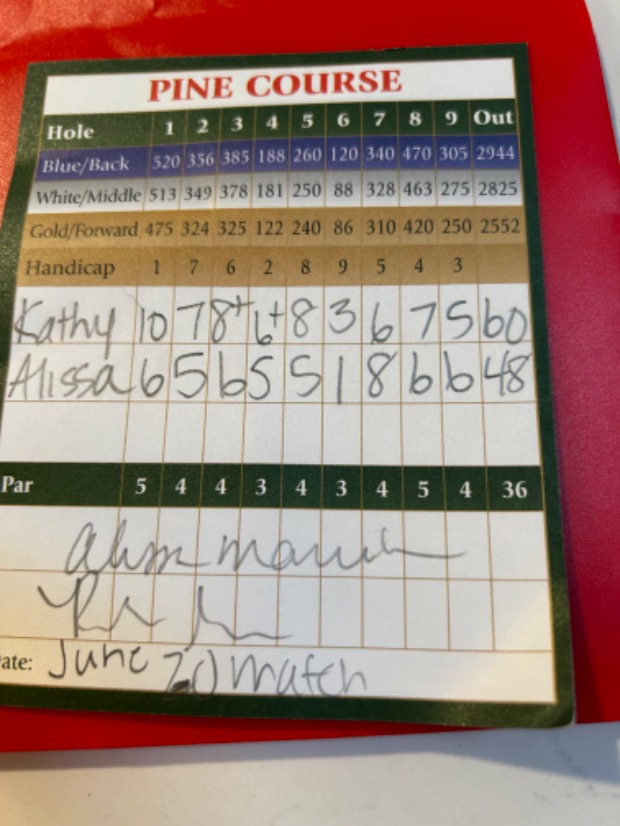 PINE COURSE
Hole 1 2 3 4 5 6 7 8 9 Out
Blue/Back 520 356 385 188 260 120 340 470 305 2944
White/Middle 513 349 378 181 250 88 328 463 275 2825
Gold/Forward 475 324 325 122 240 86 310 420 250 2552
Handicap 1 7 6 2 8 9 5 4 3
Kathy 10 7 8+ 6+ 8 3 6 7 5 60
Alissa 6 5 6 5 5 1 8 6 6 48
Par 5 4 4 3 4 3 4 5 4 36
ate: June 20 match